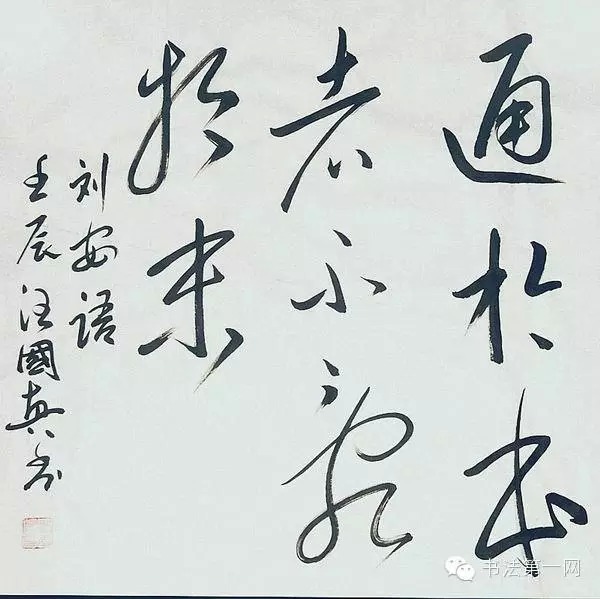 通於本
者不亂
於末
刘安语
壬辰汪國真书
书法第一网